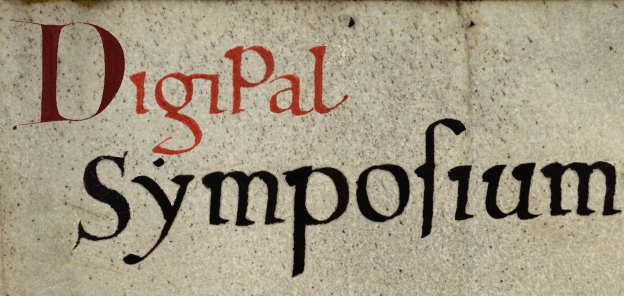 DigiPal
Sẏmpoſium